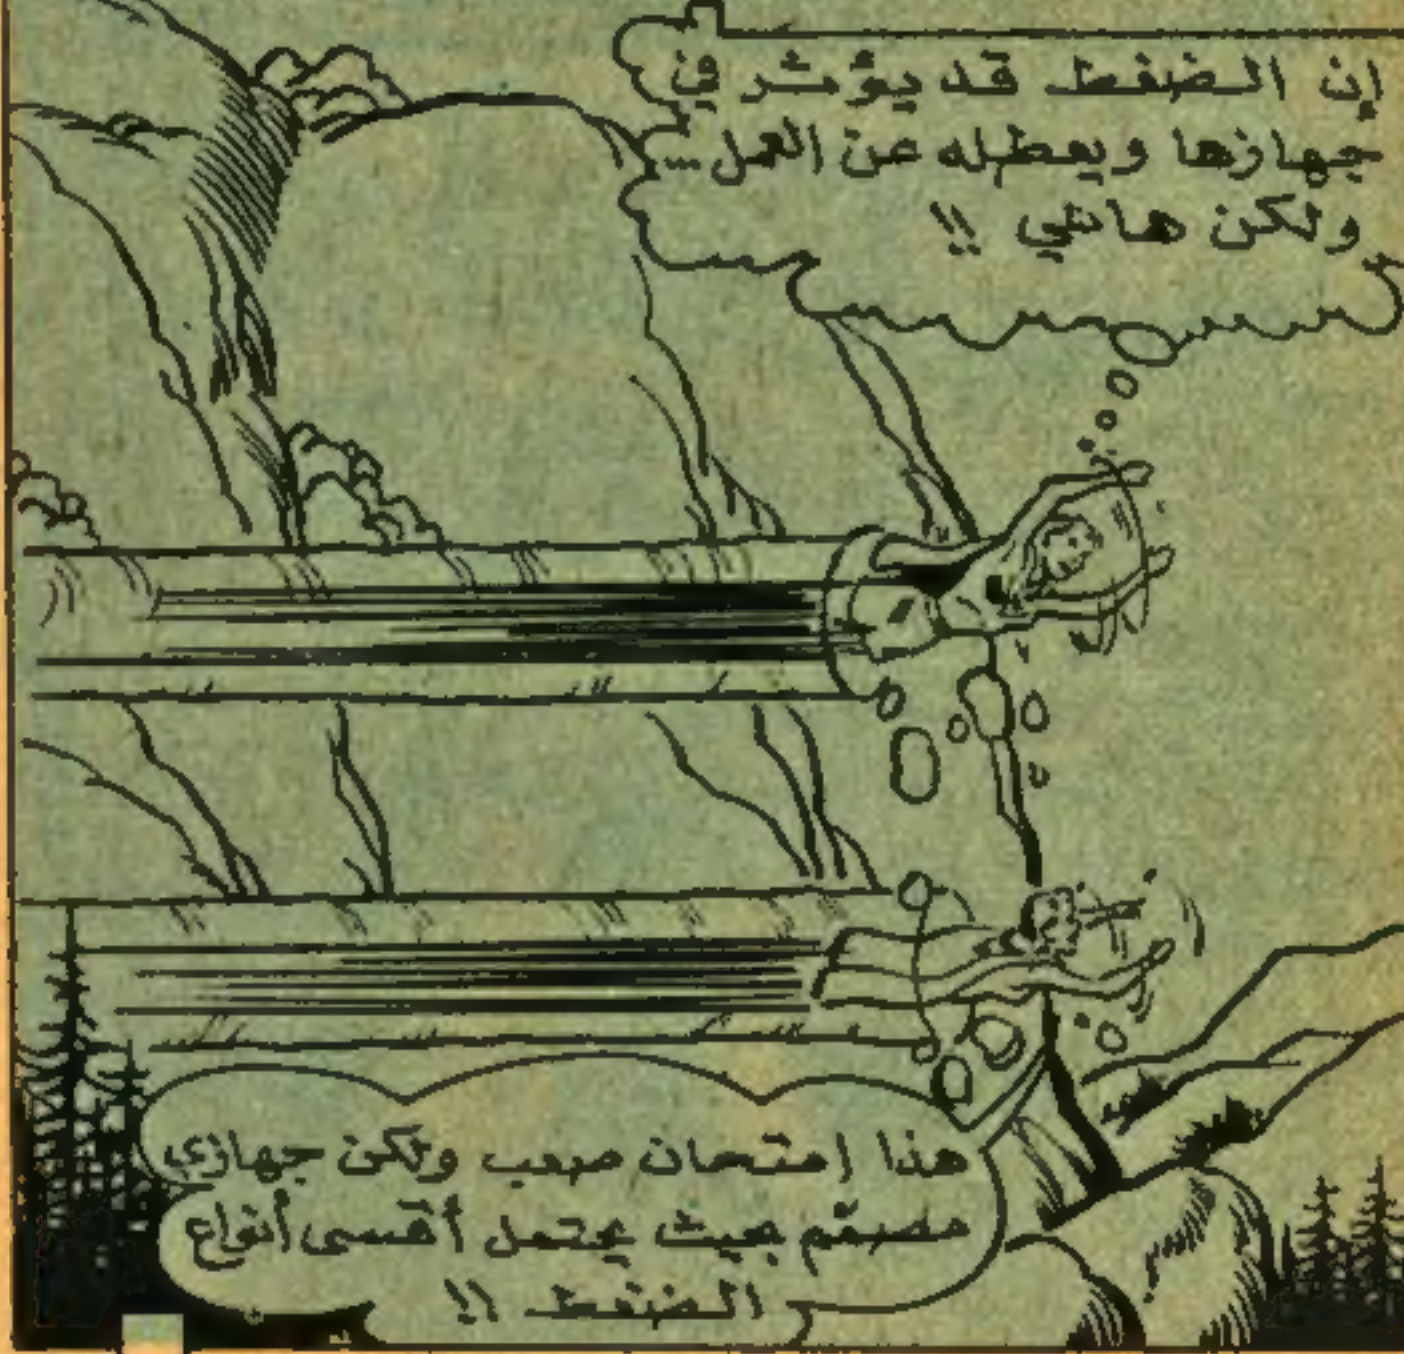 إن الضغط قد يؤثر في
جهازها ويعطله عن العمل...
ولكن هانئي !!
هذا إمتحان صعب ولكن جهازي
مصمّم بحيث يحتمل أقسى أنواع
الضغط !!